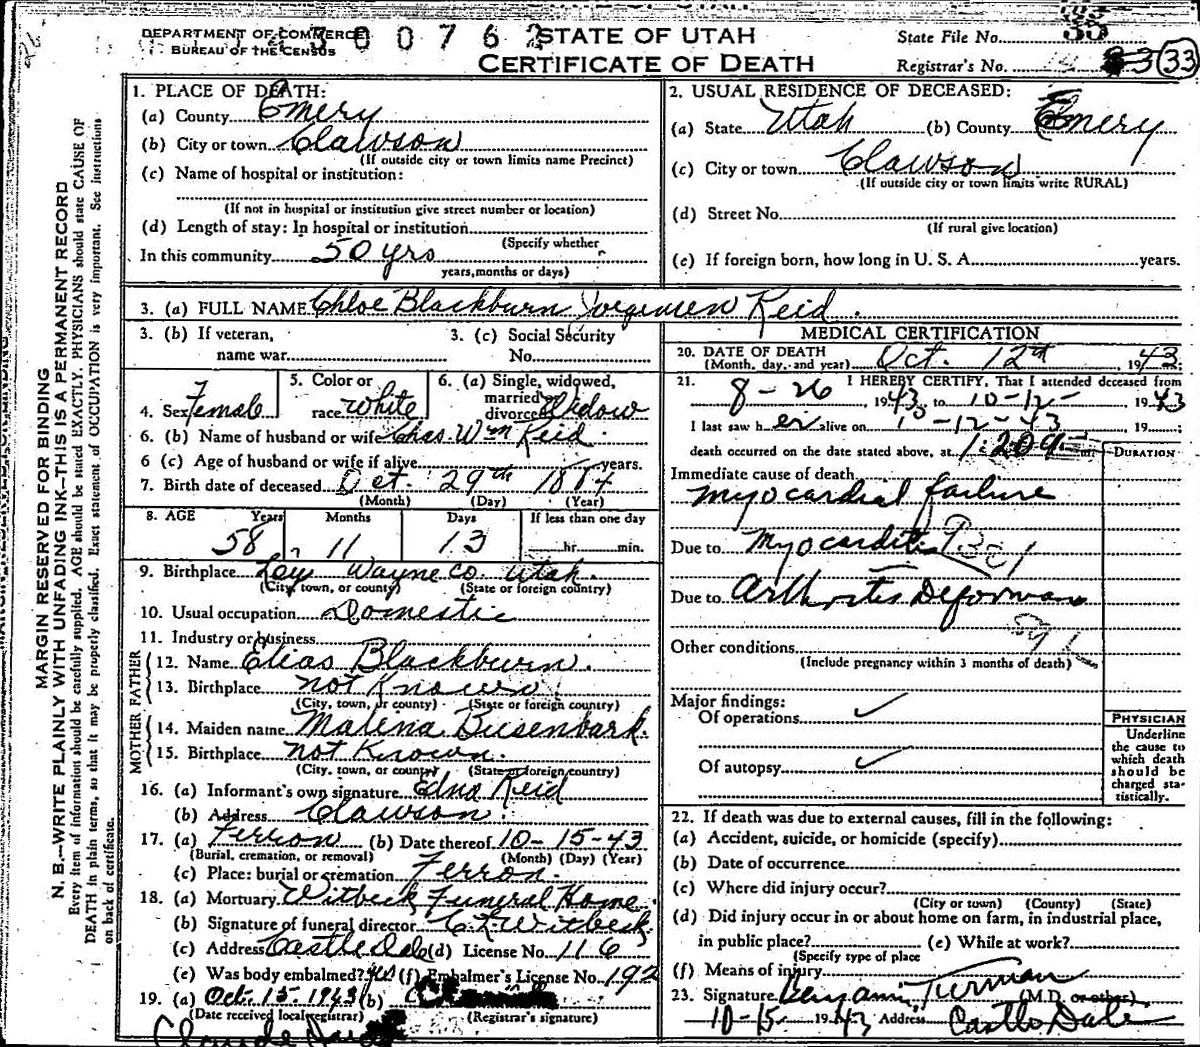 DEPARTMENT OF COMMERCE
BUREAU OF THE CENSUS
0 0 7 6 2
STATE OF UTAH
CERTIFICATE OF DEATH
State File No. 33
Registrar's No. 33
MARGIN RESERVED FOR BINDING
N. B.—WRITE PLAINLY WITH UNFADING INK—THIS IS A PERMANENT RECORD
Every item of information should be carefully supplied. AGE should be stated EXACTLY. PHYSICIANS should state CAUSE OF
DEATH in plain terms, so that it may be properly classified. Exact statement of OCCUPATION is very important. See instructions
on back of certificate.
1. PLACE OF DEATH:
(a) County Emery
(b) City or town Clawson
(If outside city or town limits name Precinct)
(c) Name of hospital or institution:
(If not in hospital or institution give street number or location)
(d) Length of stay: In hospital or institution
(Specify whether
In this community 50 yrs
years, months or days)
2. USUAL RESIDENCE OF DECEASED:
(a) State Utah (b) County Emery
(c) City or town Clawson
(If outside city or town limits write RURAL)
(d) Street No.
(If rural give location)
(e) If foreign born, how long in U. S. A. years.
3. (a) FULL NAME Chloe Blackburn Jorgensen Reid.
3. (b) If veteran,
name war
3. (c) Social Security
No.
4. Sex Female
5. Color or
race white
6. (a) Single, widowed,
married
divorced Widow
6. (b) Name of husband or wife Chas. Wm Reid.
6 (c) Age of husband or wife if alive years.
7. Birth date of deceased Oct. 29th 1884
(Month) (Day) (Year)
8. AGE Years Months Days If less than one day
58 11 13 hr. min.
9. Birthplace Loy Wayne Co. Utah.
(City, town, or county) (State or foreign country)
10. Usual occupation Domestic
11. Industry or business
FATHER
12. Name Elias Blackburn.
13. Birthplace not Known
(City, town, or county) (State or foreign country)
MOTHER
14. Maiden name Malena Busenbark.
15. Birthplace not Known.
(City, town, or county) (State or foreign country)
16. (a) Informant's own signature Edna Reid
(b) Address Clawson.
17. (a) Ferron (b) Date thereof 10-15-43
(Burial, cremation, or removal) (Month) (Day) (Year)
(c) Place: burial or cremation Ferron.
18. (a) Mortuary Witbeck Funeral Home.
(b) Signature of funeral director C. L. Witbeck.
(c) Address Castle Dale (d) License No. 116
(e) Was body embalmed? yes (f) Embalmer's License No. 192
19. (a) Oct. 15. 1943 (b)
(Date received local registrar) (Registrar's signature)
MEDICAL CERTIFICATION
20. DATE OF DEATH
(Month, day, and year) Oct. 12th 1943.
21. I HEREBY CERTIFY, That I attended deceased from
8-26, 1943, to 10-12- 1943
I last saw her alive on 10-12-43 19
death occurred on the date stated above, at 1:20 m.
DURATION
Immediate cause of death
Myocardial failure
Due to Myocarditis
Due to Arthritis Deformans
Other conditions
(Include pregnancy within 3 months of death)
Major findings:
Of operations
Of autopsy
PHYSICIAN
Underline
the cause to
which death
should be
charged sta-
tistically.
22. If death was due to external causes, fill in the following:
(a) Accident, suicide, or homicide (specify)
(b) Date of occurrence
(c) Where did injury occur?
(City or town) (County) (State)
(d) Did injury occur in or about home on farm, in industrial place,
in public place? (e) While at work?
(Specify type of place
(f) Means of injury
23. Signature Benjamin Turman (M.D. or other)
10-15- 1943 Address Castle Dale